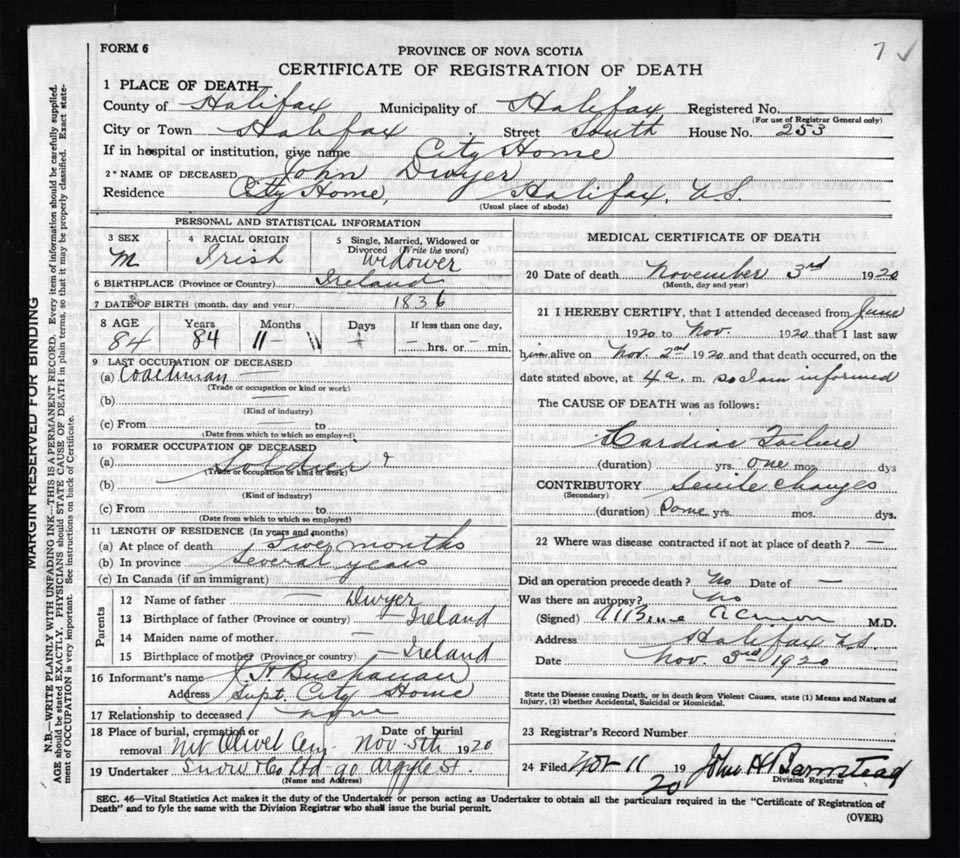 FORM 6
PROVINCE OF NOVA SCOTIA
7 ✓
CERTIFICATE OF REGISTRATION OF DEATH
1 PLACE OF DEATH
County of Halifax Municipality of Halifax Registered No.
(For use of Registrar General only)
City or Town Halifax Street South House No. 253
If in hospital or institution, give name City Home
2 NAME OF DECEASED John Dwyer
Residence City Home, Halifax, N.S.
(Usual place of abode)
PERSONAL AND STATISTICAL INFORMATION
3 SEX M
4 RACIAL ORIGIN Irish
5 Single, Married, Widowed or Divorced (Write the word) Widower
6 BIRTHPLACE (Province or Country) Ireland
7 DATE OF BIRTH (month, day and year) 1836
8 AGE Years Months Days If less than one day,
84 84 11 — — hrs. or — min.
9 LAST OCCUPATION OF DECEASED
(a) Coachman
(Trade or occupation or kind or work)
(b)
(Kind of industry)
(c) From — to
(Date from which to which so employed)
10 FORMER OCCUPATION OF DECEASED
(a) Soldier ?
(Trade or occupation or kind of work)
(b)
(Kind of industry)
(c) From to
(Date from which to which so employed)
11 LENGTH OF RESIDENCE (In years and months)
(a) At place of death months
(b) In province Several years
(c) In Canada (if an immigrant)
Parents
12 Name of father — Dwyer
13 Birthplace of father (Province or country) — Ireland
14 Maiden name of mother —
15 Birthplace of mother (Province or country) — Ireland
16 Informant's name J. H. Buchanan
Address Supt. City Home
17 Relationship to deceased none
18 Place of burial, cremation or removal Mt Olivet Cem. Date of burial Nov. 5th 1920
19 Undertaker Snow & Co Ltd 90 Argyle St.
(Name and Address)
MEDICAL CERTIFICATE OF DEATH
20 Date of death November 3rd 1920
(Month, day and year)
21 I HEREBY CERTIFY, that I attended deceased from June
1920 to Nov. 1920 that I last saw
him alive on Nov. 2nd 1920 and that death occurred, on the
date stated above, at 4 a. m. so I am informed
The CAUSE OF DEATH was as follows:
Cardiac Failure
(duration) yrs. one mos. dys
CONTRIBUTORY Senile changes
(Secondary)
(duration) Some yrs. mos. dys.
22 Where was disease contracted if not at place of death? —
Did an operation precede death? No Date of —
Was there an autopsy? No
(Signed) M.D.
Address Halifax N.S.
Date Nov. 3rd 1920
State the Disease causing Death, or in death from Violent Causes, state (1) Means and Nature of
Injury, (2) whether Accidental, Suicidal or Homicidal.
23 Registrar's Record Number
24 Filed Nov 11 1920 John H Barnstead
Division Registrar
SEC. 46—Vital Statistics Act makes it the duty of the Undertaker or person acting as Undertaker to obtain all the particulars required in the "Certificate of Registration of
Death" and to fyle the same with the Division Registrar who shall issue the burial permit.
(OVER)
MARGIN RESERVED FOR BINDING
N.B.—WRITE PLAINLY WITH UNFADING INK—THIS IS A PERMANENT RECORD. Every item of information should be carefully supplied.
AGE should be stated EXACTLY. PHYSICIANS should STATE CAUSE OF DEATH in plain terms, so that it may be properly classified. Exact state-
ment of OCCUPATION is very important. See instructions on back of Certificate.